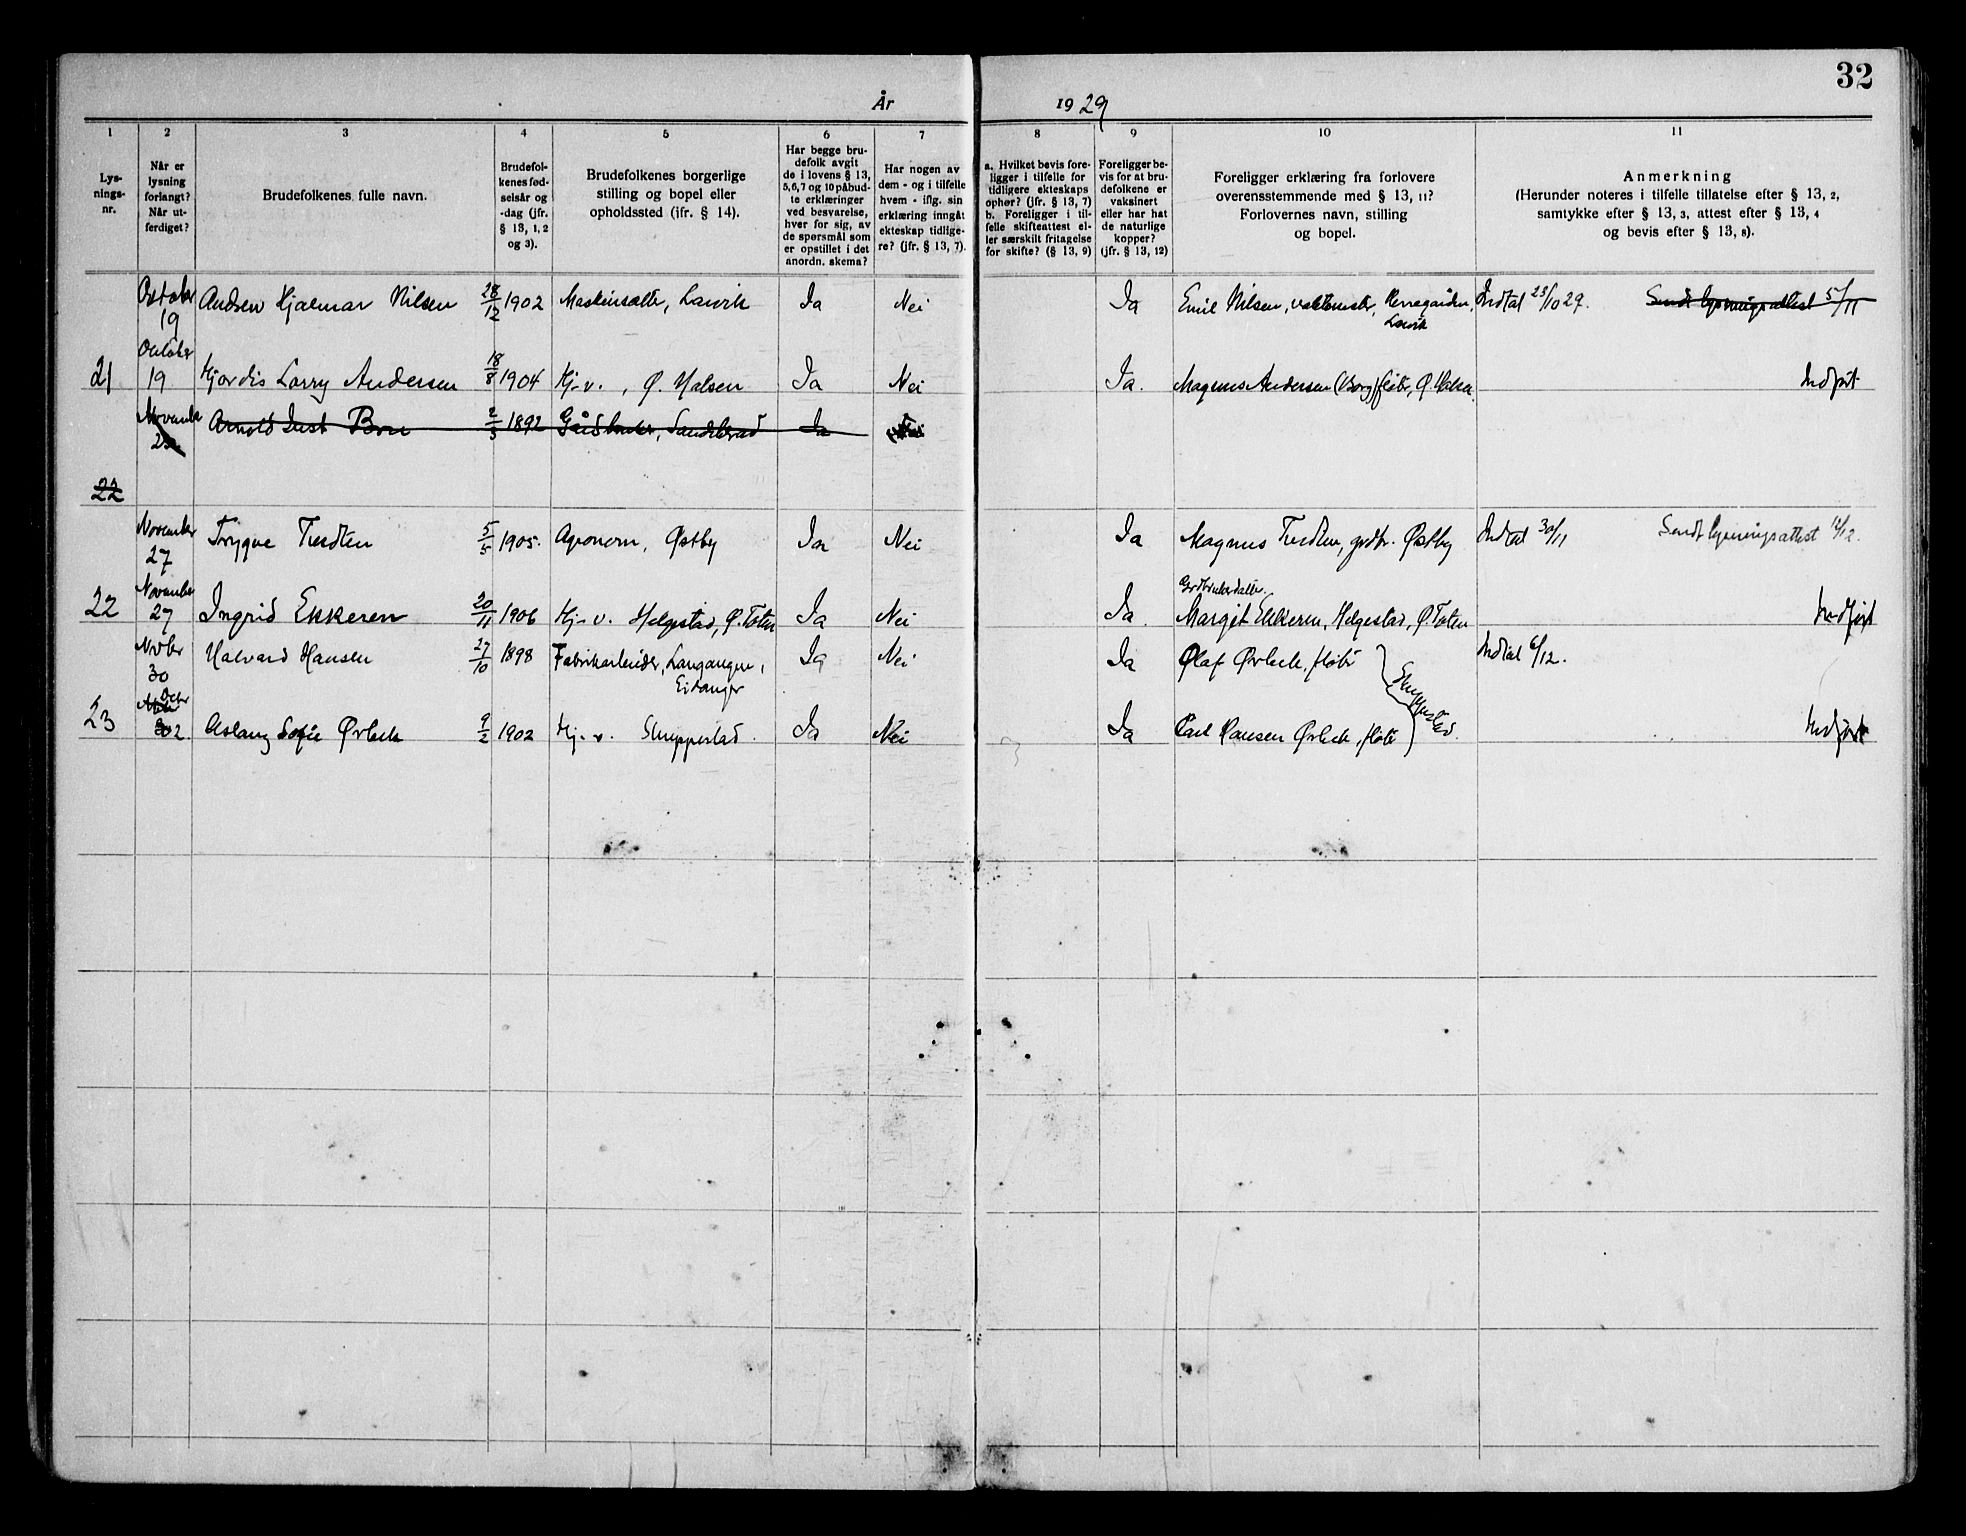 32
År 1929
1 2 3 4 5 6 7 8 9 10 11
Lys-
nings-
nr.
Når er
lysning
forlangt?
Når ut-
ferdiget?
Brudefolkenes fulle navn.
Brudefol-
kenes fød-
selsår og
-dag (jfr.
§ 13, 1, 2
og 3).
Brudefolkenes borgerlige
stilling og bopel eller
opholdssted (ifr. § 14).
Har begge bru-
defolk avgit
de i lovens § 13,
5,6,7 og 10 påbud-
te erklæringer
ved besvarelse,
hver for sig, av
de spørsmål som
er opstillet i det
anordn. skema?
Har nogen av
dem - og i tilfelle
hvem - iflg. sin
erklæring inngått
ekteskap tidlige-
re? (jfr. § 13, 7).
a. Hvilket bevis fore-
ligger i tilfelle for
tidligere ekteskaps
ophør? (jfr. § 13, 7)
b. Foreligger i til-
felle skifteattest el-
ler særskilt fritagelse
for skifte? (§ 13, 9)
Foreligger be-
vis for at bru-
defolkene er
vaksinert
eller har hat
de naturlige
kopper?
(jfr. § 13, 12)
Foreligger erklæring fra forlovere
overensstemmende med § 13, 11?
Forlovernes navn, stilling
og bopel.
Anmerkning
(Herunder noteres i tilfelle tillatelse efter § 13, 2,
samtykke efter § 13, 3, attest efter § 13, 4
og bevis efter § 13, 8).
Oktober 19 Hjalmar Nilsen 28/12 1902 Larvik Ja Nei Ja Emil Nilsen, Larvik Indtat 23/10 29. Sendt lysningsattest 5/11
21 Oktober 19 Hjørdis Andersen 18/8 1904 Hj-v., Ø. Halsen Ja Nei Ja. Magnus Andersen (Borg) Ø. Halsen. Indført
22 November Arnold Just 2/3 1892 Gårdbruker, Ja Nei
November 27 Trygve 5/5 1905. Agronom, Østby Ja Nei Ja Magnus grdbr. Østby Indtat 30/11 Sendt lysningsattest 12/12.
22 November 27 Ingrid Ekkeren 20/11 1906 Hj-v. Helgestad, Ø. Toten Ja Nei Ja. Gårdbrukerdatter Margit Ekkeren, Helgestad, Ø. Toten Indført
Novbr 30 Halvard Hansen 27/10 1898 Fabrikarbeider, Langangen, Eidanger Ja Nei Ja Olaf Ørbek, fløter Indtat 6/12.
23 Decbr 2 Aslaug Sofie Ørbek 9/2 1902 Hj-v. Skuppestad. Ja Nei Ja Carl Hansen Ørbek, fløter Skuppestad. Indført